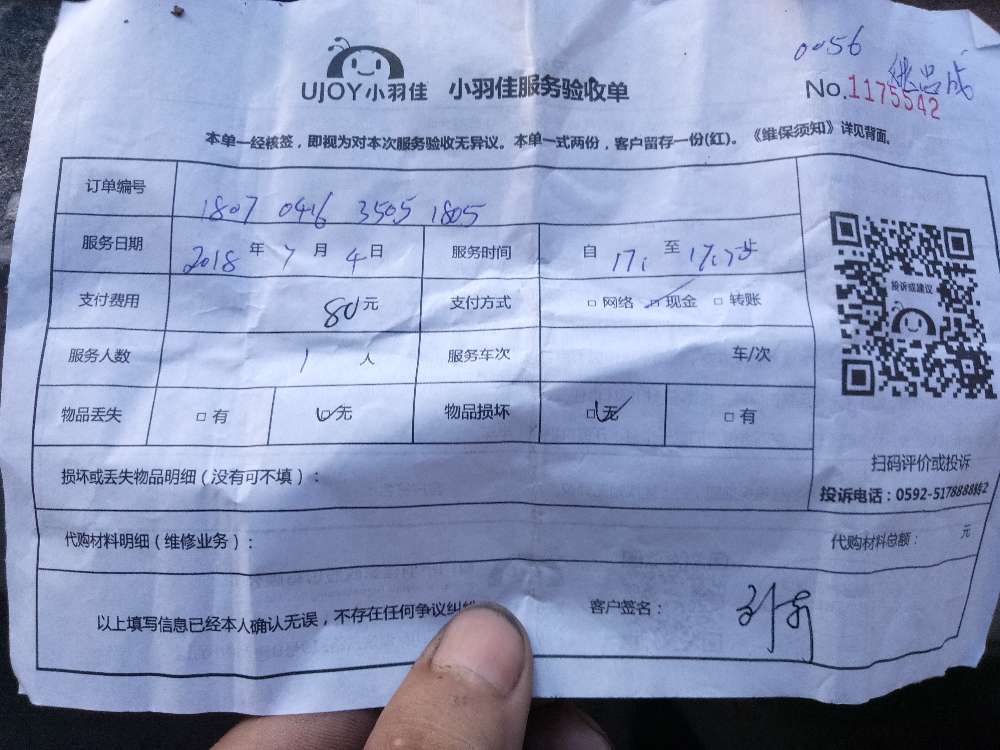 0056
UJOY小羽佳 小羽佳服务验收单 No.1175542
本单一经核签，即视为对本次服务验收无异议。本单一式两份，客户留存一份(红)。《维保须知》详见背面。
订单编号 1807 0416 3505 1805
服务日期 2018年7月4日 服务时间 自 17: 至
支付费用 80元 支付方式 □网络 □现金 □转账
服务人数 1人 服务车次 车/次
物品丢失 □有 □无 物品损坏 □无 □有
投诉或建议
损坏或丢失物品明细（没有可不填）：
扫码评价或投诉
投诉电话：0592-5178888转2
代购材料明细（维修业务）： 代购材料总额： 元
以上填写信息已经本人确认无误，不存在任何争议纠纷 客户签名：